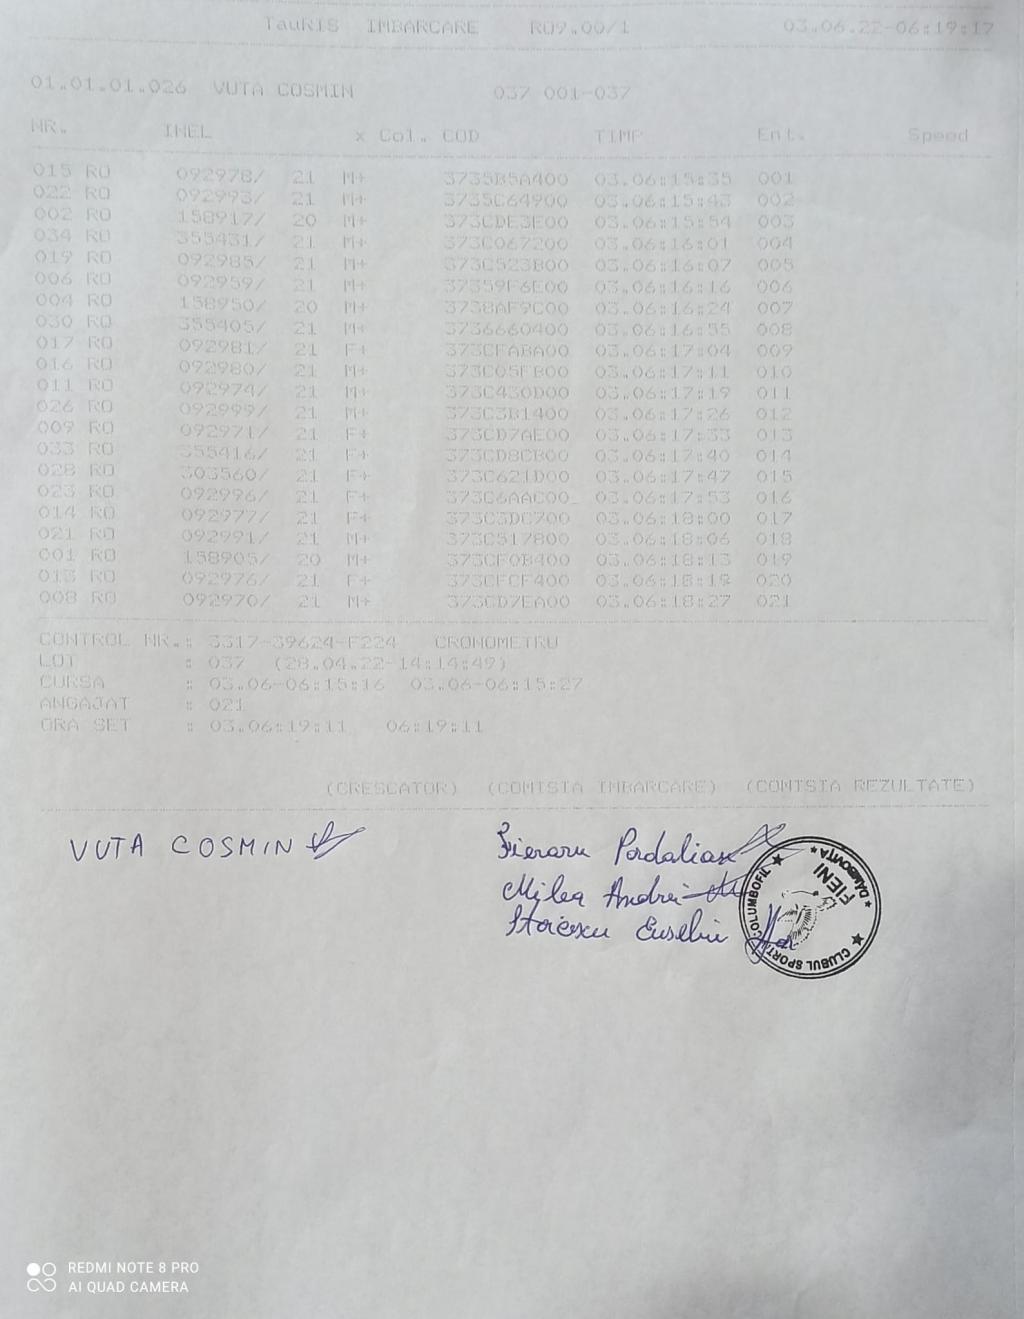 TauRIS IMBARCARE RO9.00/1 03.06.22-06:19:17
01.01.01.026 VUTA COSMIN 037 001-037
NR. INEL x Col. COD TIMP Ent. Speed
015 RO 092978/ 21 M+ 3735B5A400 03.06:15:35 001
022 RO 092993/ 21 M+ 3735C64900 03.06:15:43 002
002 RO 158917/ 20 M+ 373CDE3E00 03.06:15:54 003
034 RO 355431/ 21 M+ 373C067200 03.06:16:01 004
019 RO 092985/ 21 M+ 373C523B00 03.06:16:07 005
006 RO 092959/ 21 M+ 37359F6E00 03.06:16:16 006
004 RO 158950/ 20 M+ 3738AF9C00 03.06:16:24 007
030 RO 355405/ 21 M+ 3736660400 03.06:16:55 008
017 RO 092981/ 21 F+ 373CFABA00 03.06:17:04 009
016 RO 092980/ 21 M+ 373C05FB00 03.06:17:11 010
011 RO 092974/ 21 M+ 373C430D00 03.06:17:19 011
026 RO 092999/ 21 M+ 373C3B1400 03.06:17:26 012
009 RO 092971/ 21 F+ 373CD7AE00 03.06:17:33 013
033 RO 355416/ 21 F+ 373CD8CB00 03.06:17:40 014
028 RO 303560/ 21 F+ 373C621D00 03.06:17:47 015
023 RO 092996/ 21 F+ 373C6AAC00 03.06:17:53 016
014 RO 092977/ 21 F+ 373C3DC700 03.06:18:00 017
021 RO 092991/ 21 M+ 373C517800 03.06:18:06 018
001 RO 158905/ 20 M+ 373CF0B400 03.06:18:13 019
013 RO 092976/ 21 F+ 373CFCF400 03.06:18:19 020
008 RO 092970/ 21 M+ 373CD7EA00 03.06:18:27 021
CONTROL NR.: 3317-39624-F224 CRONOMETRU
LOT : 037 (28.04.22-14:14:49)
CURSA : 03.06-06:15:16 03.06-06:15:27
ANGAJAT : 021
ORA SET : 03.06:19:11 06:19:11
(CRESCATOR) (COMISIA IMBARCARE) (COMISIA REZULTATE)
VUTA COSMIN
Fieraru Pordalian
Milea Andrei
Stoicescu Eusebiu
CLUBUL SPORT COLUMBOFIL
FIENI
DÂMBOVIȚA
REDMI NOTE 8 PRO
AI QUAD CAMERA